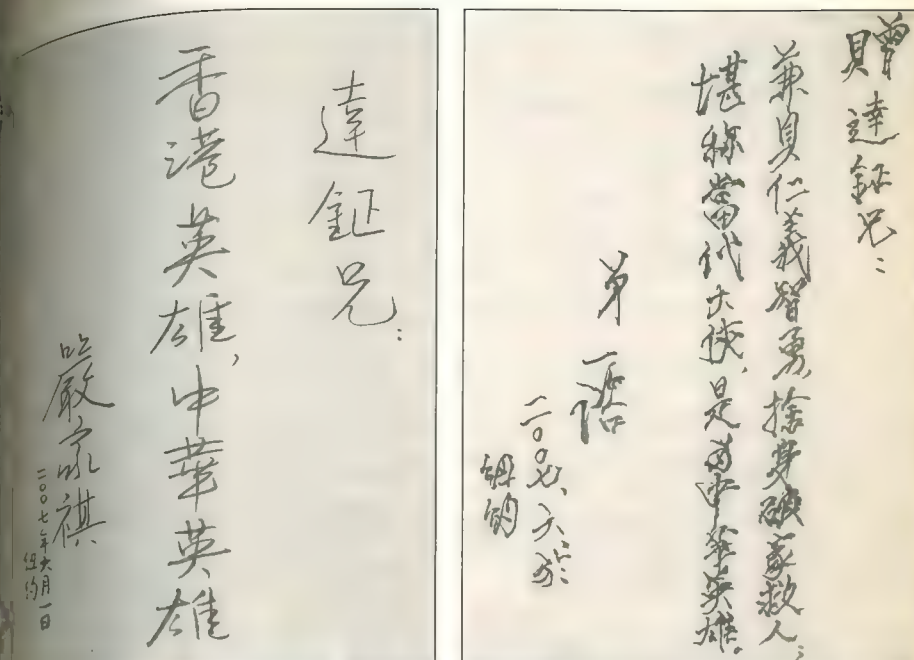 贈達鉦兄：
兼具仁義智勇，捨身破家救人；
堪稱當代大俠，是為中華英雄。
弟 一
二〇〇七、六、
紐約
達鉦兄：
香港英雄，中華英雄
嚴家祺
二〇〇七年六月一日
紐約